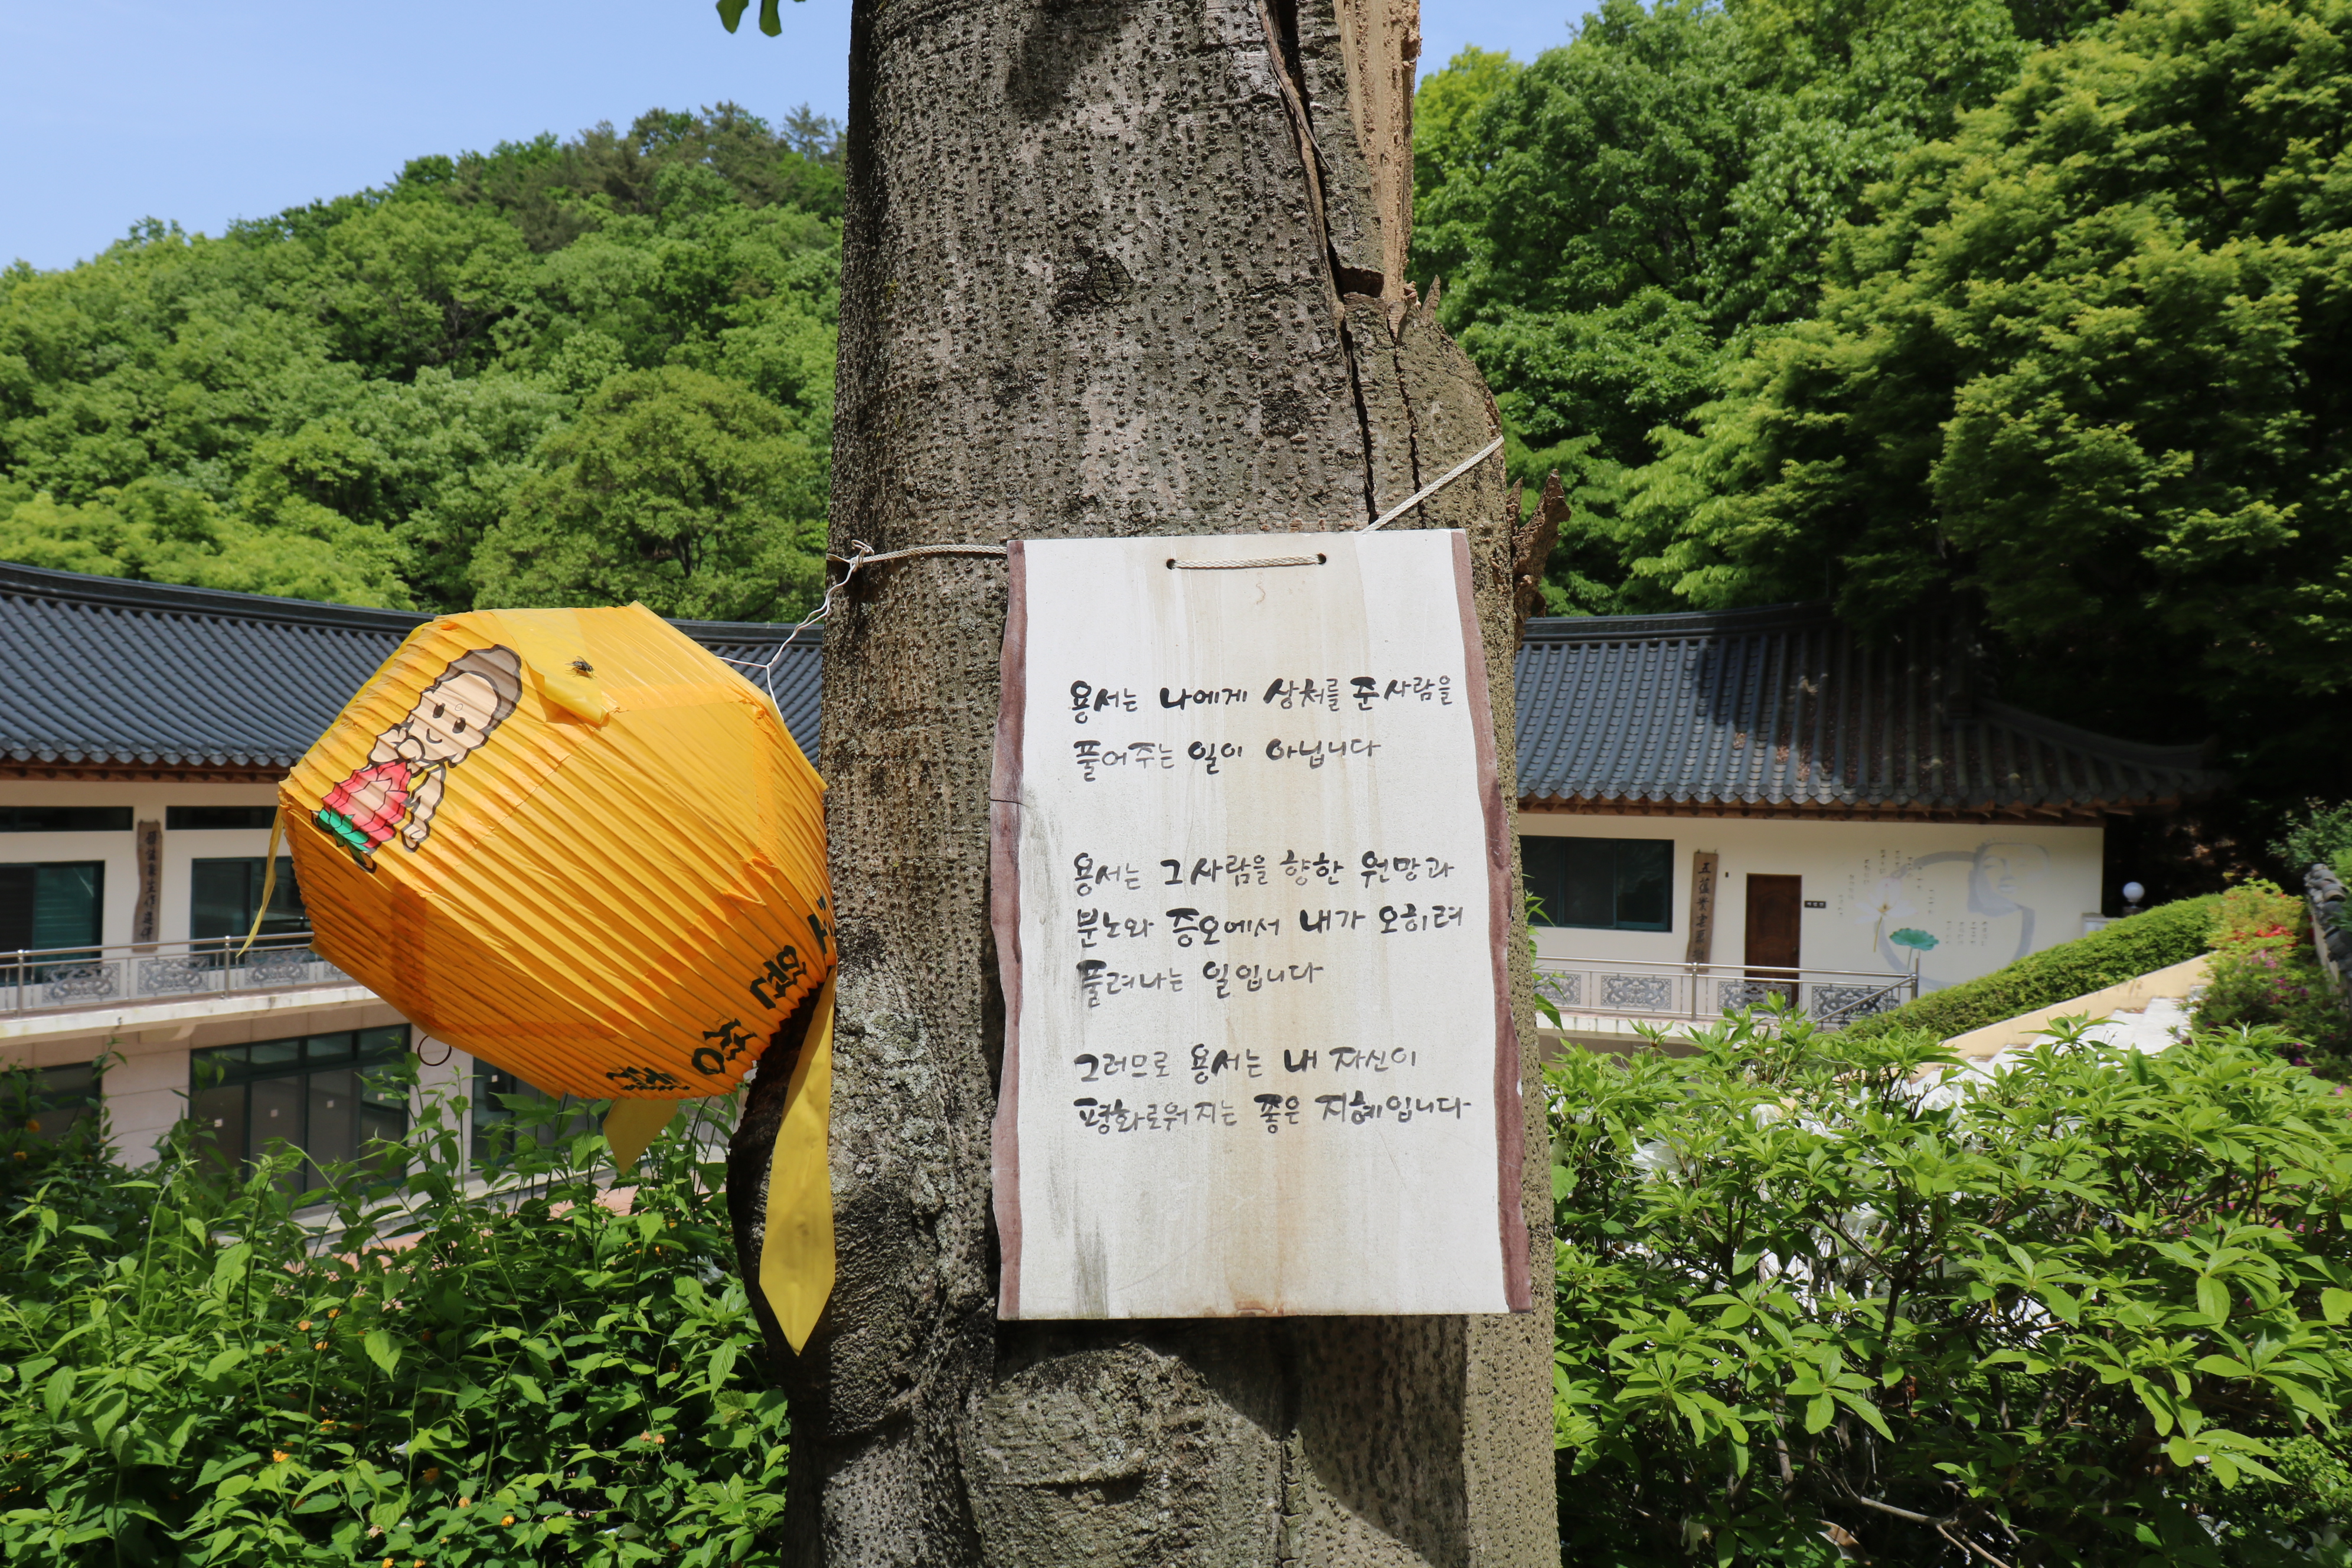 용서는 나에게 상처를 준 사람을
풀어주는 일이 아닙니다
용서는 그 사람을 향한 원망과
분노와 증오에서 내가 오히려
풀려나는 일입니다
그러므로 용서는 내 자신이
평화로워지는 좋은 지혜입니다